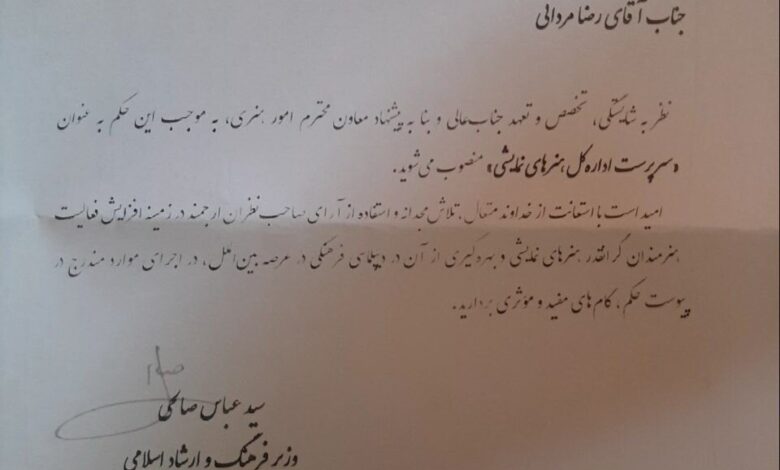 جناب آقای رضا مردانی
نظر به شایستگی، تخصص و تعهد جناب‌عالی و بنا به پیشنهاد معاون محترم امور هنری، به موجب این حکم به عنوان
«سرپرست اداره کل هنرهای نمایشی» منصوب می‌شوید.
امید است با استعانت از خداوند متعال، تلاش مجدانه و استفاده از آرای صاحب نظران ارجمند در زمینه افزایش فعالیت
هنرمندان گرانقدر هنرهای نمایشی و بهره‌گیری از آن در دیپلماسی فرهنگی در عرصه بین‌الملل، در اجرای موارد مندرج در
پیوست حکم، گام‌های مفید و مؤثری بردارید.
سید عباس صالحی
وزیر فرهنگ و ارشاد اسلامی